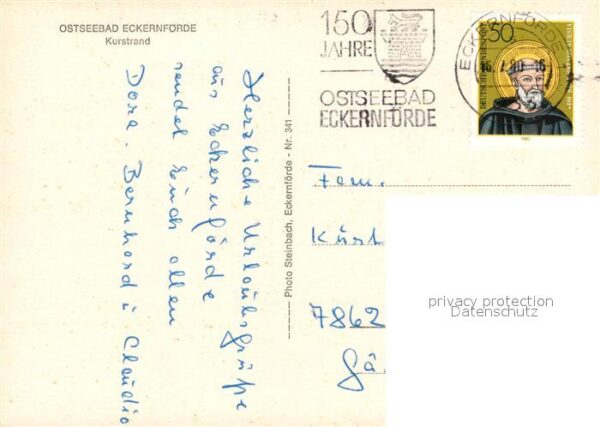 OSTSEEBAD ECKERNFÖRDE
Kurstrand
150
JAHRE
OSTSEEBAD
ECKERNFÖRDE
ECKERNFÖRDE
50
DEUTSCHE BUNDESPOST
Herzliche Urlaubsgrüße
aus Eckernförde
sendet Euch allen
Dora. Bernhard u Claudio
Photo Steinbach, Eckernförde - Nr. 341
Fam.
Künst
7862
privacy protection
Datenschutz